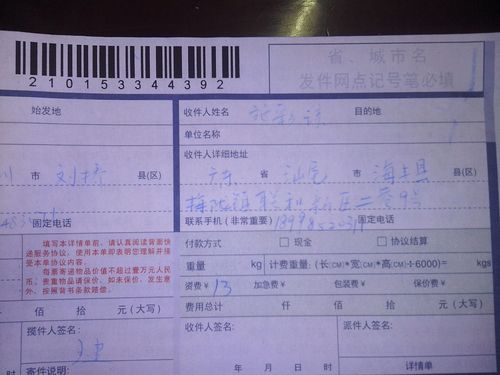 210153344392
省、城市名
发件网点记号笔必填
始发地
收件人姓名 目的地
单位名称
收件人详细地址
市 刘桥 县(区)
广东 省 汕尾 市 海丰县 县(区)
梅陇镇联和
固定电话
联系手机(非常重要) 固定电话
填写本详情单前,请认真阅读背面快
递服务协议,使用本单即表明您理解并接
受本单协议内容。
每票寄递物品价值不超过壹万元人民
币,贵重物品请保价,如未保价,发生意
外,按照背书条款赔偿。
付款方式 □现金 □协议结算
重量 kg 计费重量:(长(CM)*宽(CM)*高(CM)÷6000)=
资费¥ 13 加急费¥ 包装费¥ 保价费¥
费用总计 仟 佰 拾 元(大写)
佰 拾 元(大写)
揽件人签名:
收件人签名: 派件人签名:
年 月 日 时
寄件说明:
详情单